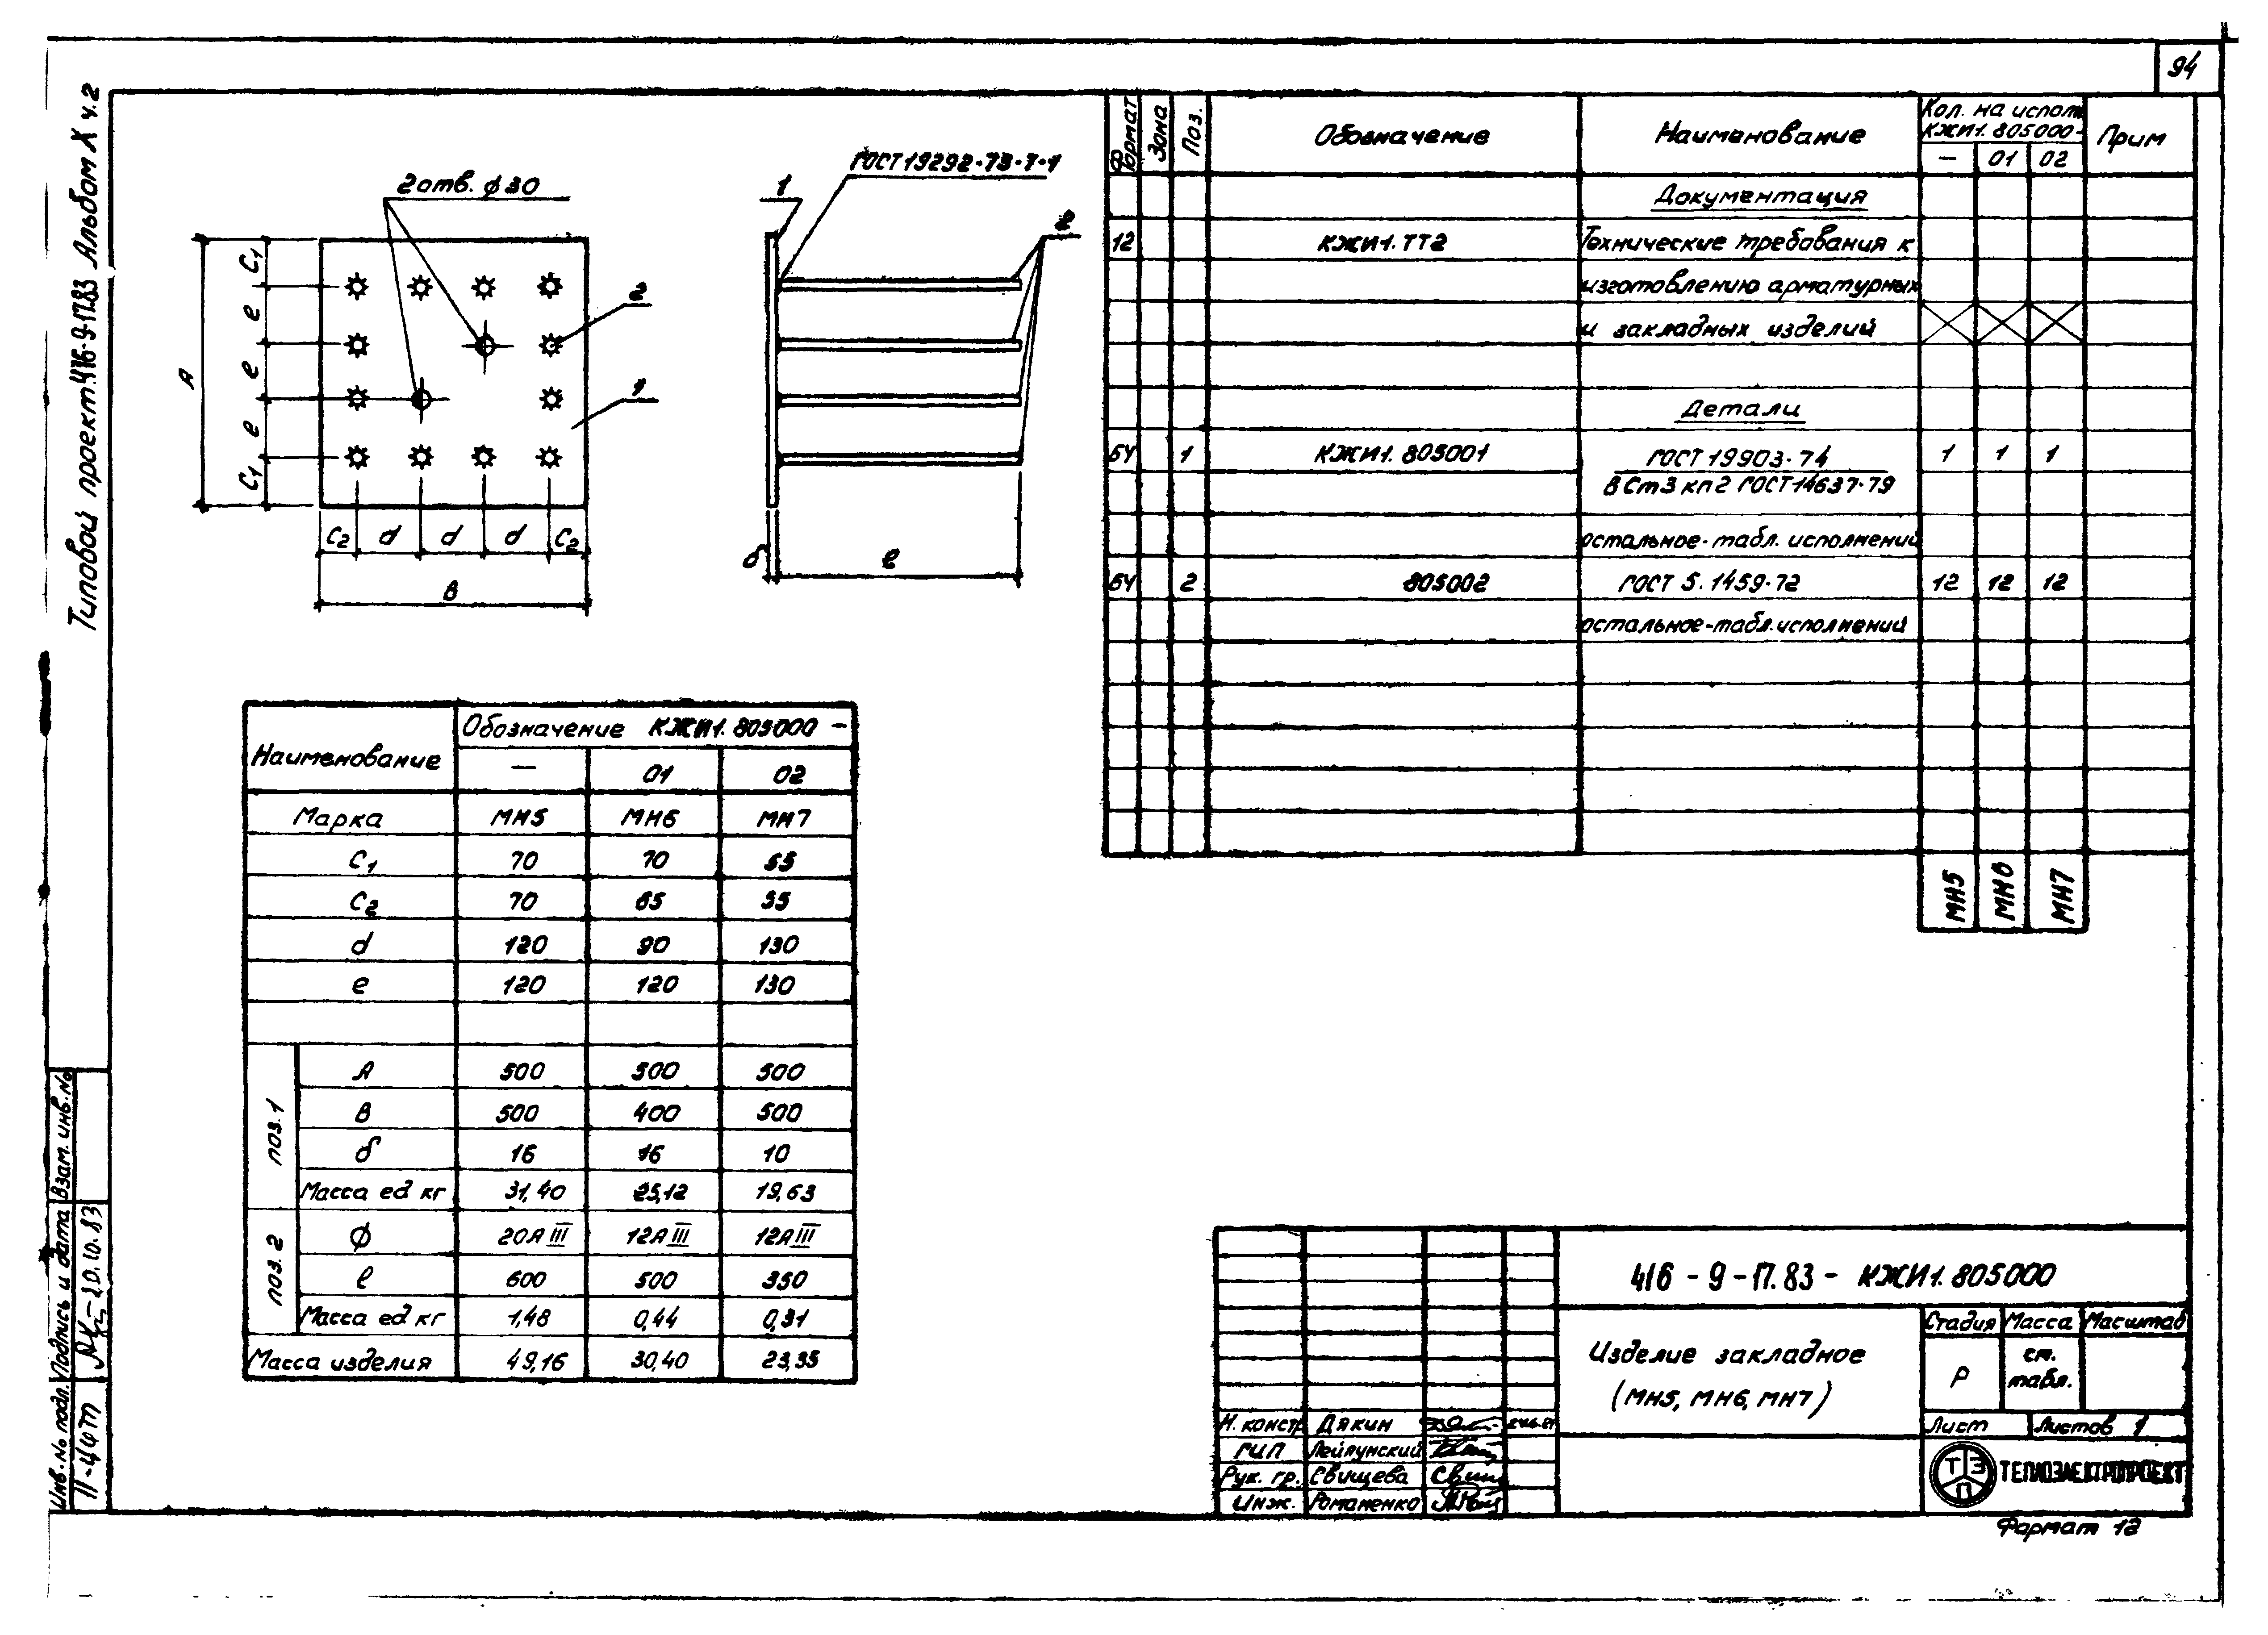 94
Типовой проект 416-9-17.83 Альбом X ч.2
2 отв. ф 30
ГОСТ 19292-73-Т-1
1
2
2
1
A
C1
e
e
e
C1
C2 d d d C2
B
δ
ℓ
Формат Зона Поз. Обозначение Наименование Кол. на исполн. КЖИ1.805000- Прим
— 01 02
Документация
12 КЖИ1.ТТ2 Технические требования к
изготовлению арматурных
и закладных изделий
Детали
БЧ 1 КЖИ1.805001 ГОСТ 19903-74 1 1 1
ВСт3кп2 ГОСТ 14637-79
остальное-табл. исполнений
БЧ 2 805002 ГОСТ 5.1459-72 12 12 12
остальное-табл. исполнений
МН5 МН6 МН7
Наименование Обозначение КЖИ1.805000 -
— 01 02
Марка МН5 МН6 МН7
C1 70 70 55
C2 70 65 55
d 120 90 130
e 120 120 130
поз.1
A 500 500 500
B 500 400 500
δ 16 16 10
Масса ед кг 31,40 25,12 19,63
поз.2
ф 20АIII 12АIII 12АIII
ℓ 600 500 350
Масса ед кг 1,48 0,44 0,31
Масса изделия 49,16 30,40 23,35
416 - 9 - 17.83 - КЖИ1.805000
Изделие закладное
(МН5, МН6, МН7)
Стадия Масса Масштаб
Р см. табл.
Лист Листов 1
Н. констр. Дякин
ГИП Лейпунский
Рук. гр. Свищева
Инж. Романенко
ТЭП
ТЕПЛОЭЛЕКТРОПРОЕКТ
Формат 12
Взам. инв. №
Подпись и дата 20.10.83
Инв. № подл. 11-44т